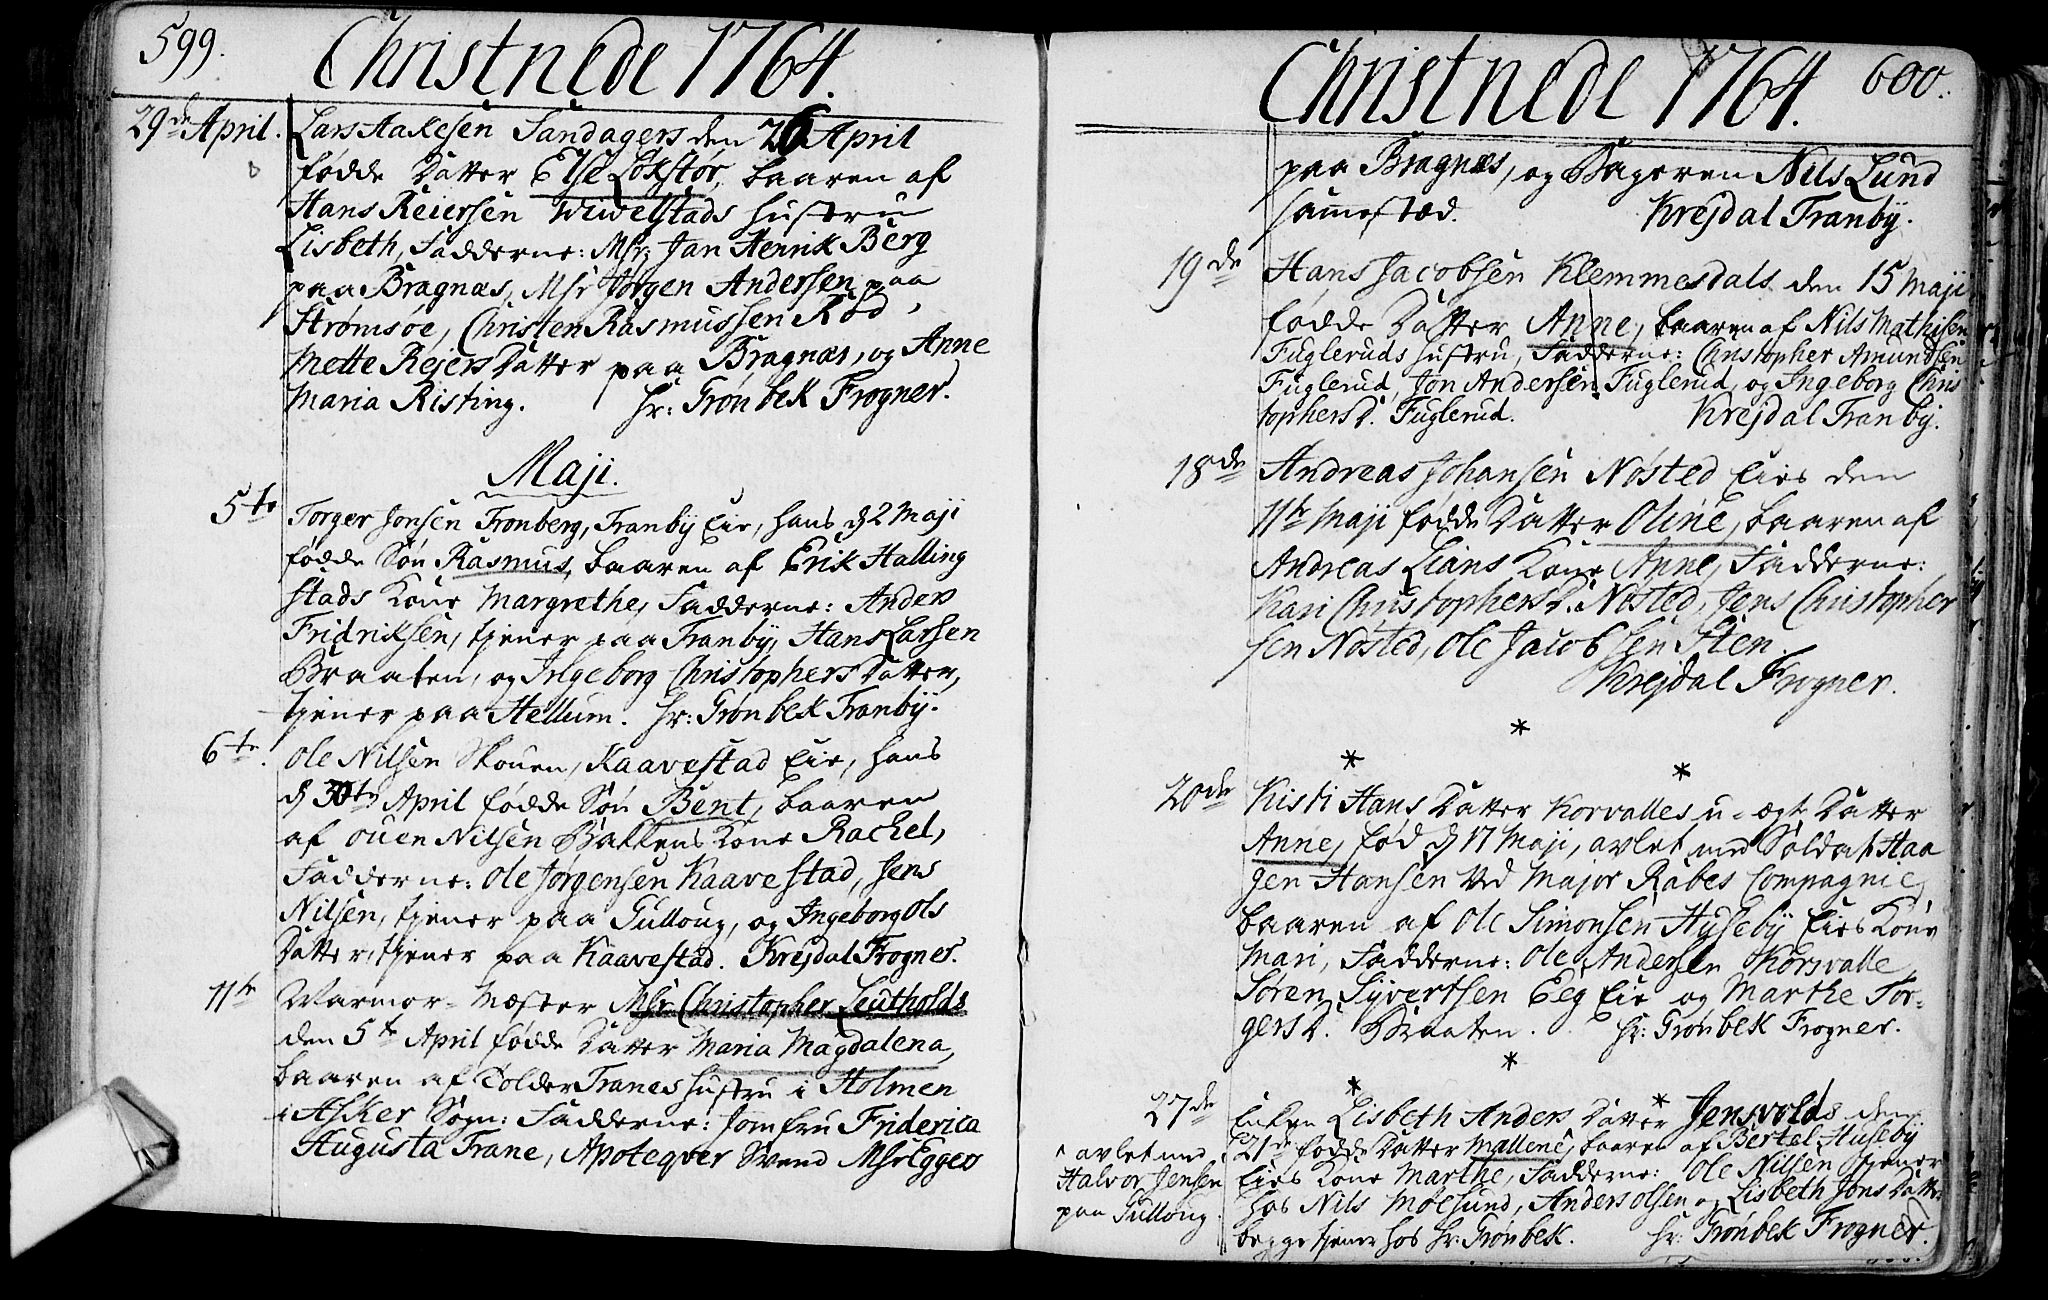 599.
Christnede 1764.
29de April. Lars Aakesen Sandagers den 26 April
fødde Datter Else Lökstör, baaren af
Hans Reiersen Wivelstads Hustru
Lisbeth, Fadderne: Msr Jan Henrik Berg
paa Bragnæs, Msr Jørgen Andersen paa
Strømsøe, Christen Rasmussen Röd,
Mette Reiers Datter paa Bragnæs, og Anne
Maria Risting. Hr: Grönbek Frogner.
Maji.
5te Torger Jonsen Fronberg, Tranby Eie, hans d 2 Maji
fødde Sön Rasmus, baaren af Erik Halling
stads Kone Margrethe, Fadderne: Anders
Fridriksen, tjener paa Tranby, Hans Larsen
Braaten, og Ingeborg Christophers Datter,
tjener paa Hellum. Hr: Grönbek Tranby.
6te. Ole Nilsen Skouen, Kaavestad Eie, hans
d 30te April fødde Sön Bent, baaren
af Ouen Nilsen Bakkens Kone Rachel,
Fadderne: Ole Jørgensen Kaavestad, Jens
Nilsen, tjener paa Gulloug, og Ingeborg Ols
Datter, tjener paa Kaavestad. Krejdal Frogner.
11te Marmor-Mæster Msr Christopher Leutholds
den 5te April fødde Datter Maria Magdalena,
baaren af Tolder Tranes Hustru i Holmen
i Asker Sogn: Fadderne: Jomfru Friderica
Augusta Trane, Apoteqver Svend Msr Eggers
Christnede 1764. 600.
paa Bragnæs, og Bageren Nils Lund
sammested. Krejdal Tranby.
19de Hans Jacobsen Klemmesdals den 15 Maji
fødde Datter Anne, baaren af Nils Mathisen
Fugleruds Hustru, Fadderne: Christopher Amundsen
Fuglerud, Jon Andersen Fuglerud, og Ingeborg Chris
tophers D. Fuglerud. Krejdal Tranby.
18de Andreas Johansen Nösted Eies den
11te Maji fødde Datter Oline, baaren af
Andreas Lians Kone Anne, Fadderne:
Kari Christophers D. Nösted, Jens Christopher
sen Nösted, Ole Jacobsen Sten.
Krejdal Frogner.
*
* *
20de Kisti Hans Datter Korvalles u-ægt Datter
Anne, fød d 17 Maji, avlet med Soldat Haa
gen Hansen ved Major Rabes Compagnie
baaren af Ole Simonsen Hyseby Eies Kone
Mari, Fadderne: Ole Andersen Korsvalle
Sören Syvertsen Eeg Eie og Marthe Tor-
gers D. Braaten. Hr: Grönbek Frogner.
*
* *
27de Enken Lisbeth Anders Datter Jensvolds den
^ avlet med 21de fødde Datter Mallene^, baaren af Bertel Huseby
Halvor Jensen Eies Kone Marthe, Fadderne: Ole Nilsen tjener
paa Gulloug. hos Nils Moesund, Anders Olsen og Lisbeth Jons Datter
begge tjener hos Hr: Grönbek. Hr: Grönbek Frogner.